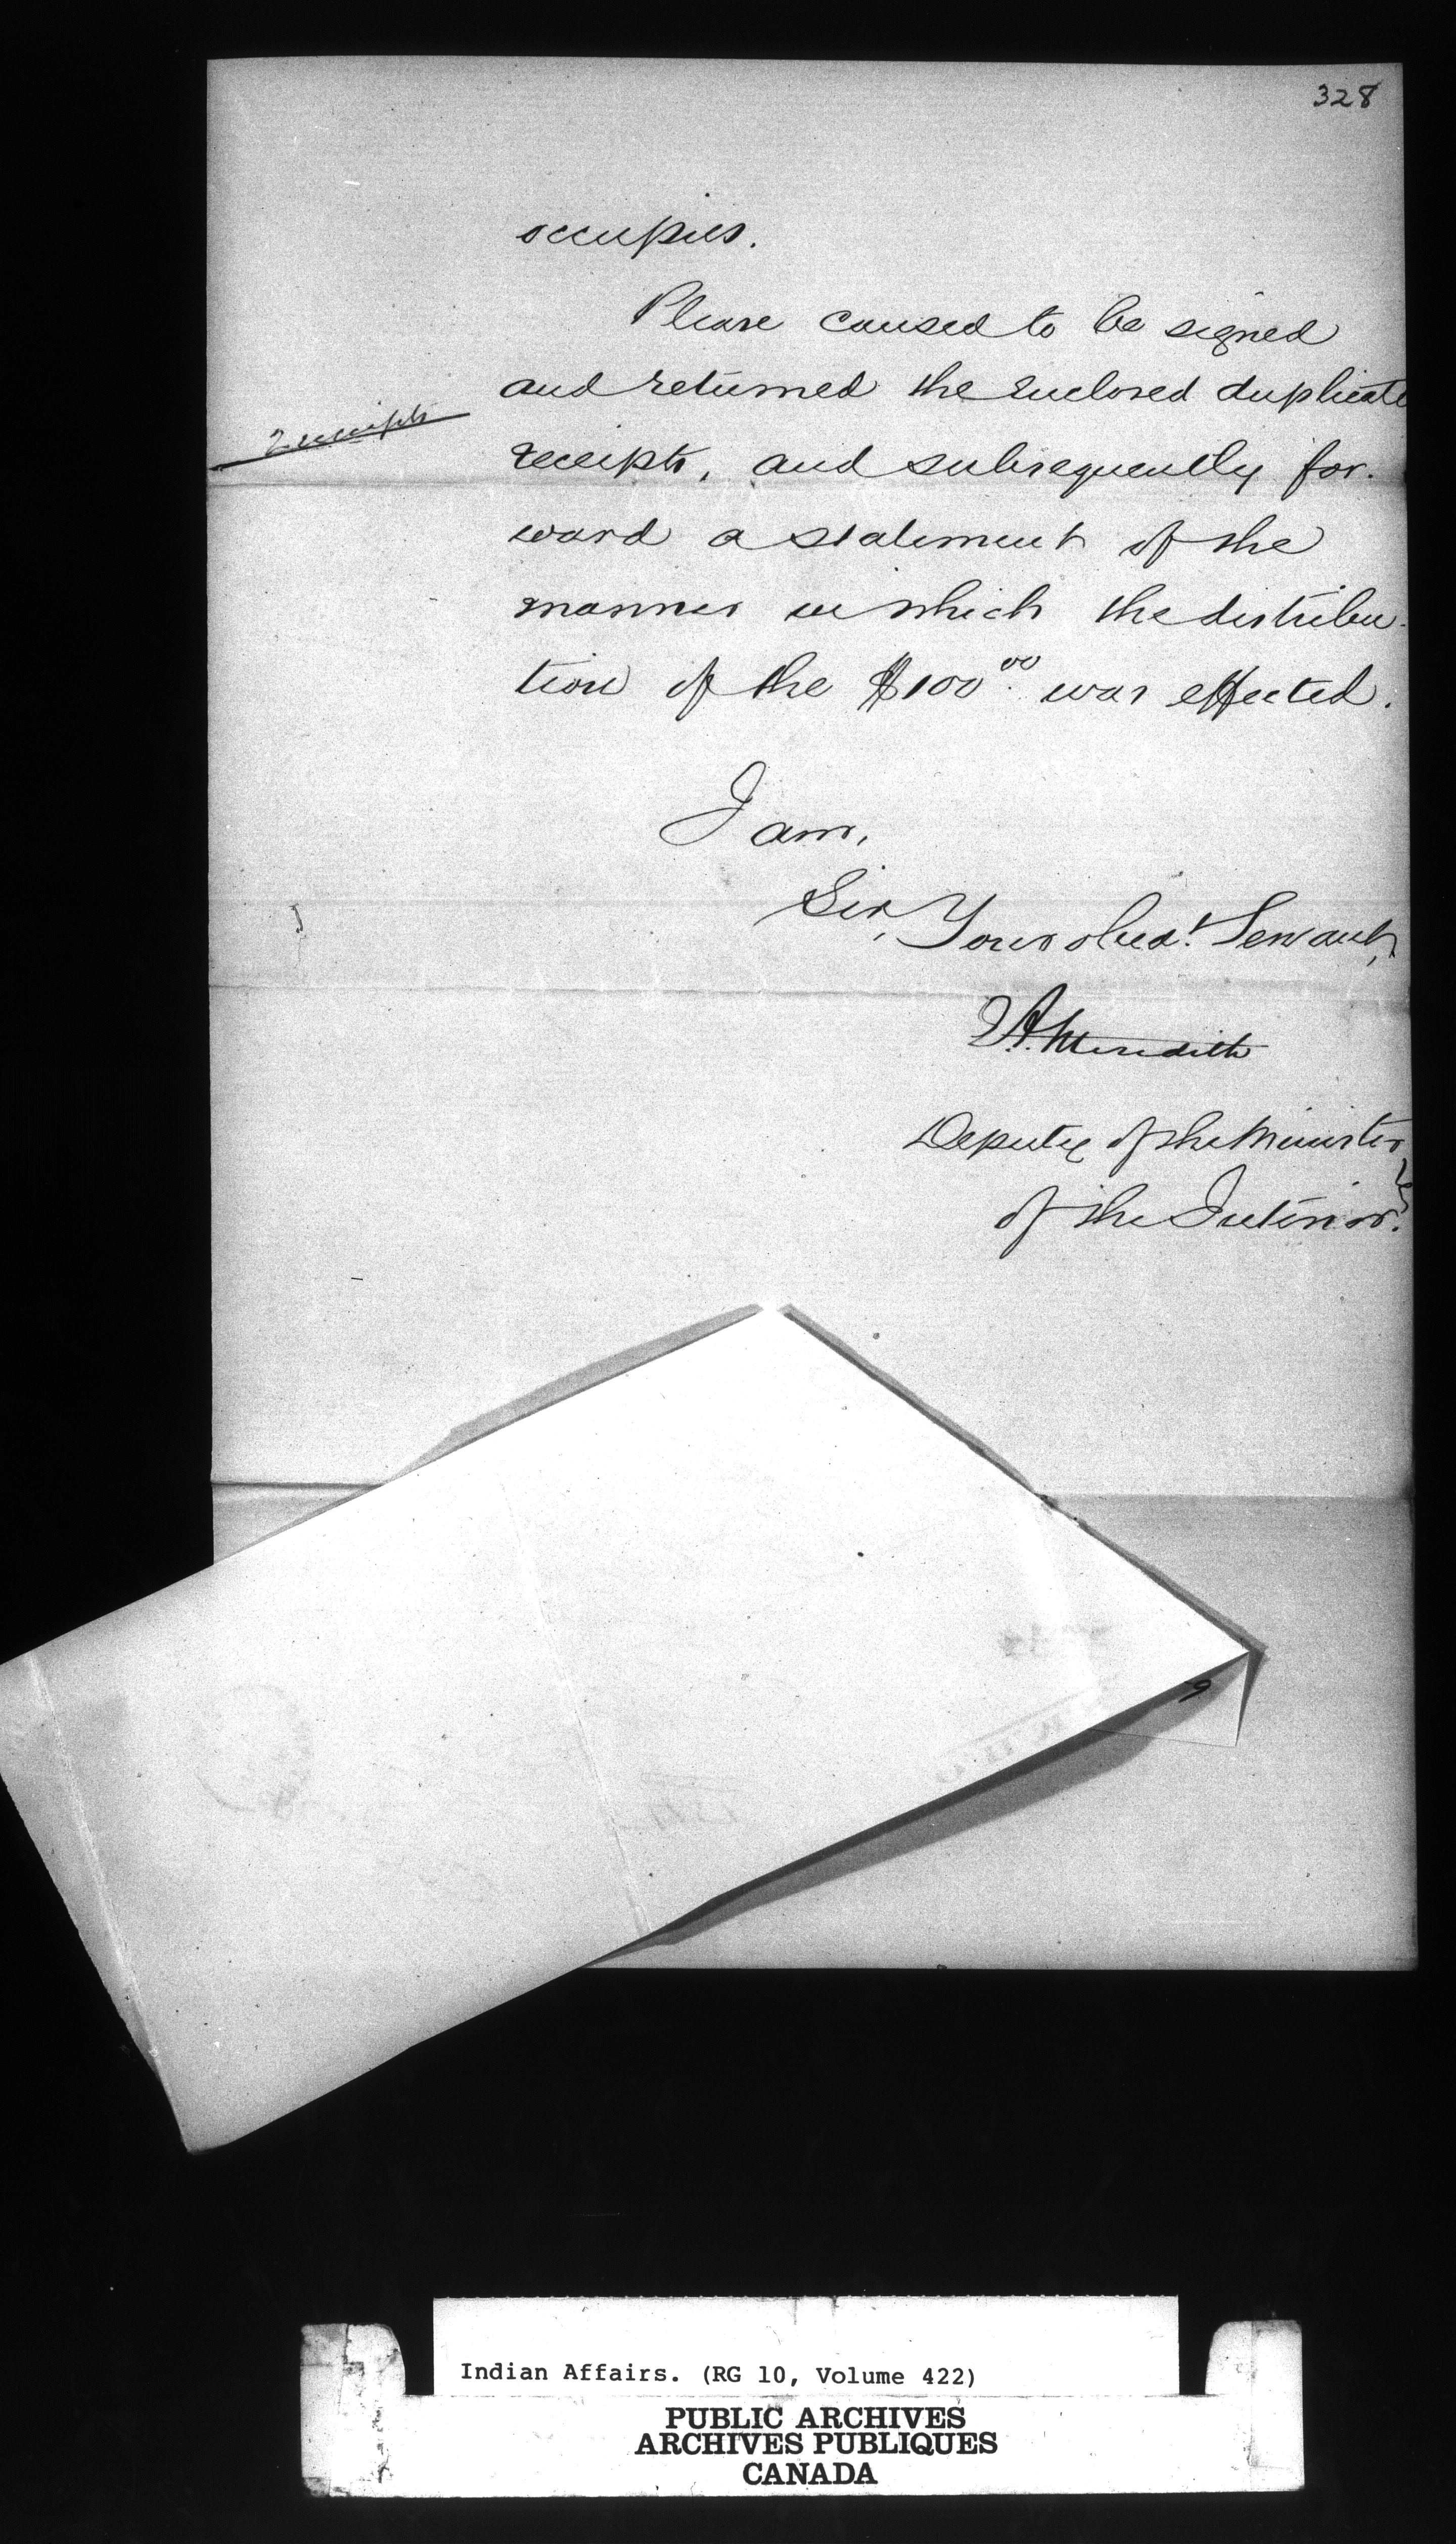 328
occupies.
Please caused to be signed
and returned the enclosed duplicate
2 receipts
receipts, and subsequently for-
ward a statement of the
manner in which the distribu-
tion of the $100.00 was effected.
I am,
Sir,
Your obedt. Servant,
E A. Meredith
Deputy of the Minister
of the Interior.
9
Indian Affairs. (RG 10, Volume 422)
PUBLIC ARCHIVES
ARCHIVES PUBLIQUES
CANADA